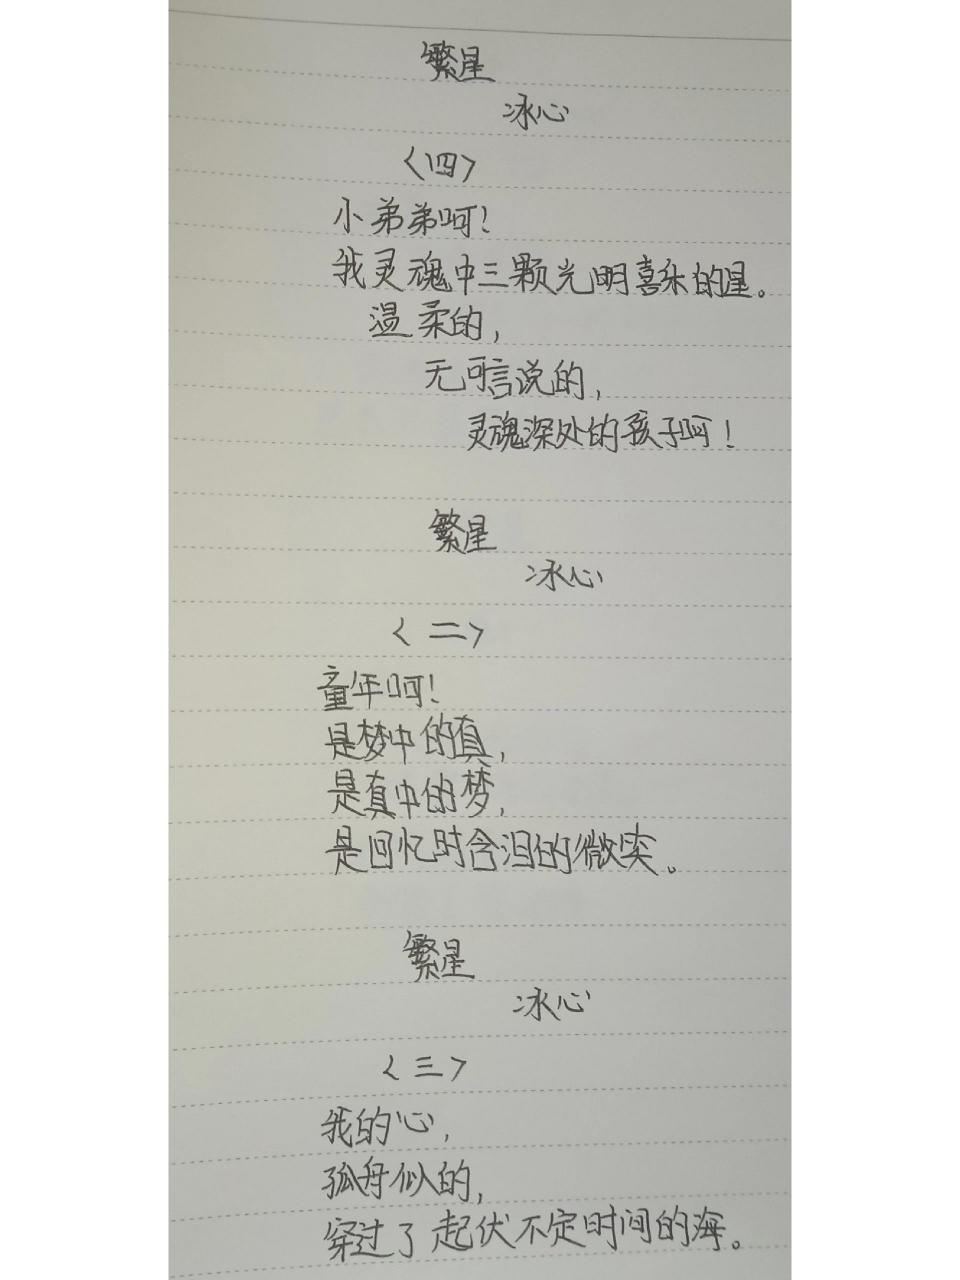 繁星
冰心
〈四〉
小弟弟呵!
我灵魂中三颗光明喜乐的星。
温柔的,
无可言说的,
灵魂深处的孩子呵!
繁星
冰心
〈二〉
童年呵!
是梦中的真,
是真中的梦,
是回忆时含泪的微笑。
繁星
冰心
〈三〉
我的心,
孤舟似的,
穿过了起伏不定时间的海。